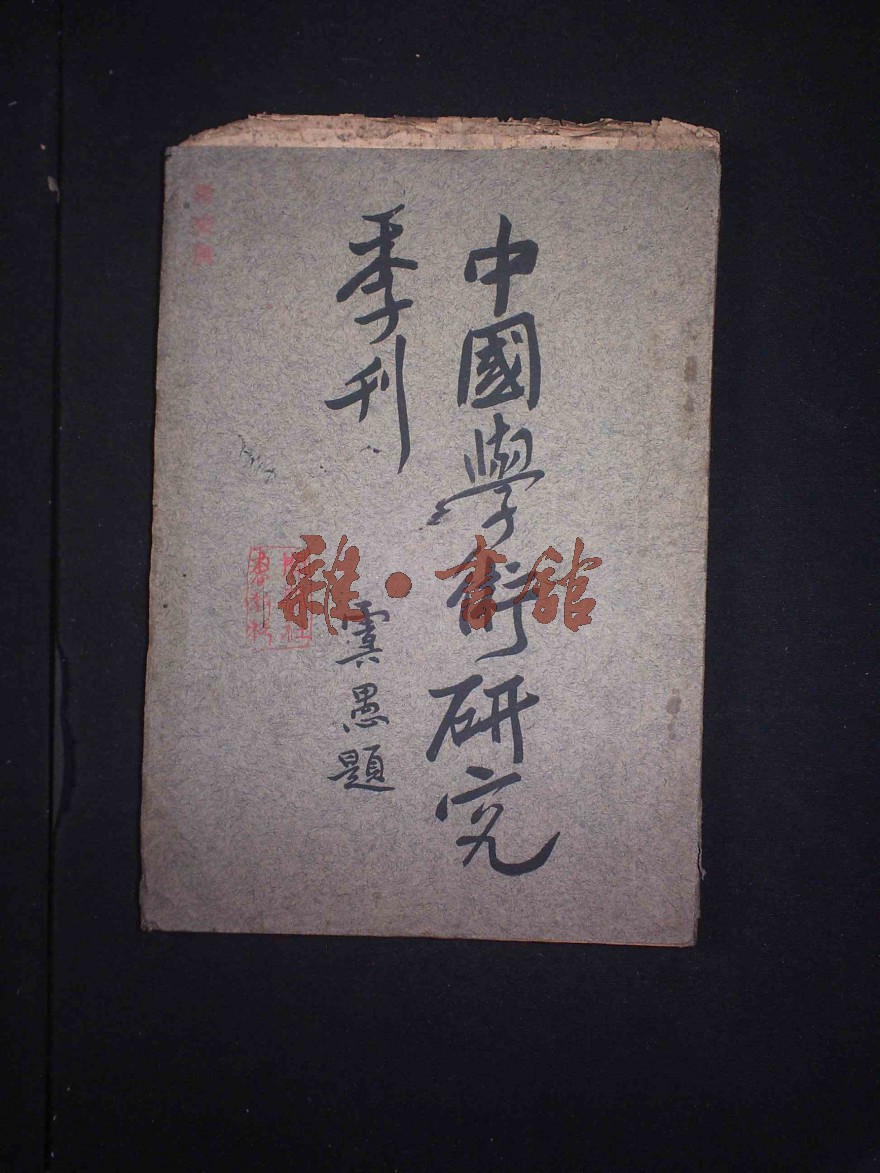 中國學術研究
季刊
虞愚題
雜·書館